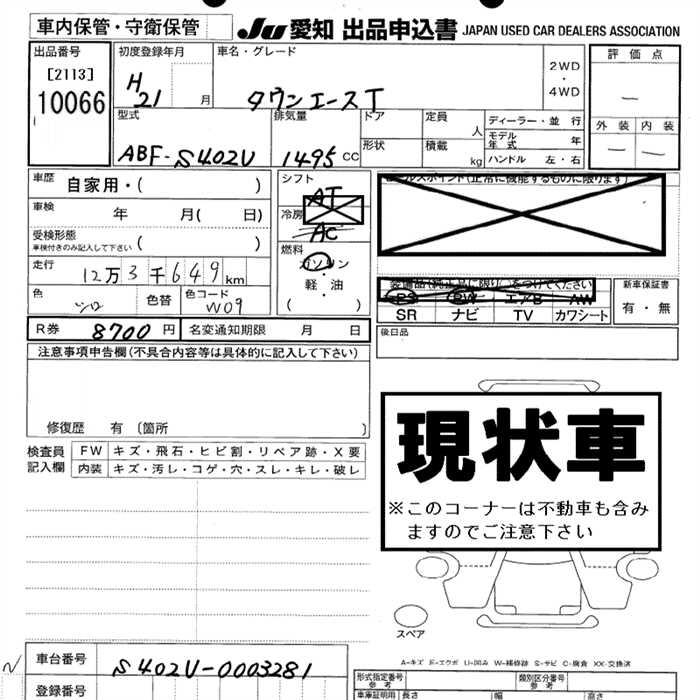 車内保管・守衛保管
JU 愛知 出品申込書 JAPAN USED CAR DEALERS ASSOCIATION
出品番号
[2113]
10066
初度登録年月
H
21 月
車名・グレード
タウンエースT
2WD
・
4WD
評価点
—
外装 内装
— —
型式
ABF-S402U
排気量
1495 CC
ドア
形状
定員 人
積載 kg
ディーラー・並行
モデル年式 年
ハンドル 左・右
車歴 自家用・( )
車検 年 月( 日)
受検形態
車検付きのみ記入して下さい ( )
走行 12万3千649km
色 シロ 色替 色コード W09
シフト
AT
冷房
AC
燃料
ガソリン
・
軽・油
( )
セールスポイント(正常に機能するものに限ります)
装備品(純正品に限り○をつけてください)
PS PW エアB AW
SR ナビ TV カワシート
新車保証書
有・無
R券 8700 円 名変通知期限 月 日
後日品
注意事項申告欄(不具合内容等は具体的に記入して下さい)
修復歴 有 〔箇所 〕
検査員
記入欄
FW キズ・飛石・ヒビ割・リペア跡・X要
内装 キズ・汚レ・コゲ・穴・スレ・キレ・破レ
現状車
※このコーナーは不動車も含み
ますのでご注意下さい
スペア
A-キズ E-エクボ U-凹み W-補修跡 S-サビ C-腐食 XX-交換済
車台番号 S402U-0003281
登録番号
形式指定番号
参考
類別区分番号
参考
車庫証明用 長さ 幅 高さ